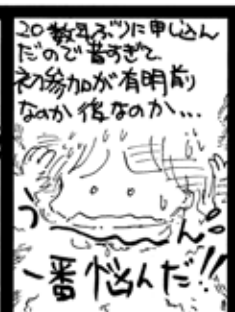 20数年ぶりに申し込ん
だので昔すぎて
初参加が有明前
なのか後なのか…
う〜ん。
一番悩んだ!!